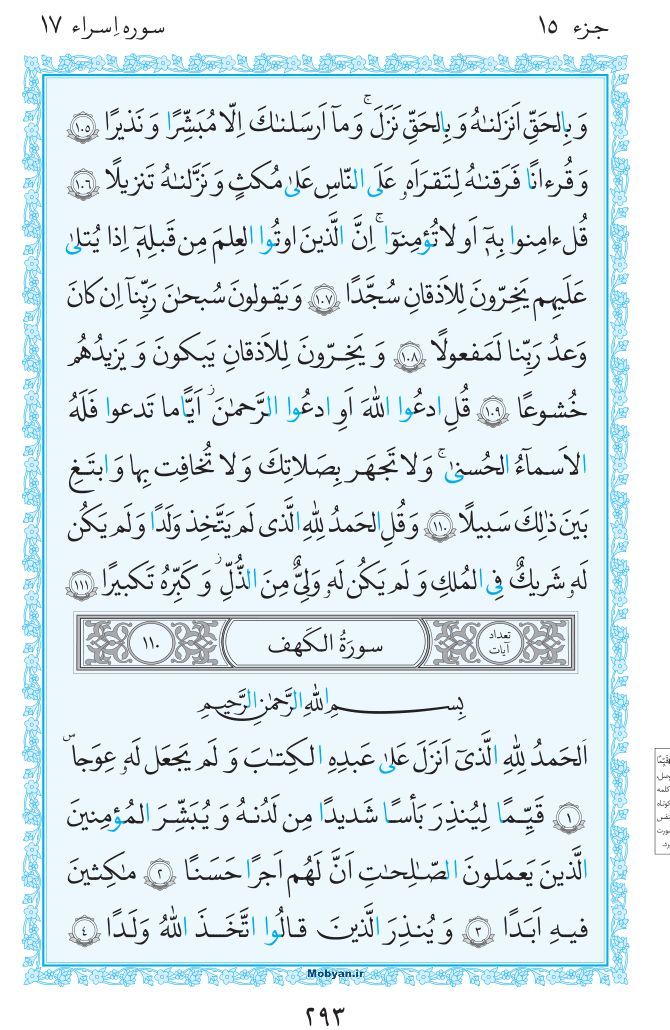 جزء ۱۵
سوره اِسراء ۱۷
وَ بِالحَقِّ اَنزَلنـٰهُ وَ بِالحَقِّ نَزَلَ ۚ وَ مآ اَرسَلنـٰكَ اِلّا مُبَشِّرًا وَ نَذيرًا ﴿۱۰۵﴾
وَ قُرءانًا فَرَقنـٰهُ لِتَقرَاَهو عَلَى النّاسِ عَلىٰ مُكثٍ وَ نَزَّلنـٰهُ تَنزيلًا ﴿۱۰۶﴾
قُل ءامِنوا بِهٖٓ اَو لا تُؤمِنوٓا ۚ اِنَّ الَّذينَ اوتُوا العِلمَ مِن قَبلِهٖٓ اِذا يُتلىٰ
عَلَيهِم يَخِرّونَ لِلاَذقانِ سُجَّدًا ﴿۱۰۷﴾ وَ يَقولونَ سُبحـٰنَ رَبِّنآ اِن كانَ
وَعدُ رَبِّنا لَمَفعولًا ﴿۱۰۸﴾ وَ يَخِرّونَ لِلاَذقانِ يَبكونَ وَ يَزيدُهُم
خُشوعًا ﴿۱۰۹﴾ قُلِ ادعُوا اللهَ اَوِ ادعُوا الرَّحمـٰنَ ۖ اَيًّا ما تَدعوا فَلَهُ
الاَسمآءُ الحُسنىٰ ۚ وَ لا تَجهَر بِصَلاتِكَ وَ لا تُخافِت بِها وَ ابتَغِ
بَينَ ذٰلِكَ سَبيلًا ﴿۱۱۰﴾ وَ قُلِ الحَمدُ لِلّٰهِ الَّذى لَم يَتَّخِذ وَلَدًا وَ لَم يَكُن
لَهو شَريكٌ فِى المُلكِ وَ لَم يَكُن لَهو وَلِىٌّ مِنَ الذُّلِّ ۖ وَ كَبِّرهُ تَكبيرًا ﴿۱۱۱﴾
تعداد آیات
سورَةُ الكَهف
۱۱۰
بِسمِ اللهِ الرَّحمـٰنِ الرَّحيمِ
اَلحَمدُ لِلّٰهِ الَّذىٓ اَنزَلَ عَلىٰ عَبدِهِ الكِتـٰبَ وَ لَم يَجعَل لَهو عِوَجا ۜ
﴿۱﴾ قَيِّمًا لِيُنذِرَ بَأسًا شَديدًا مِن لَدُنهُ وَ يُبَشِّرَ المُؤمِنينَ
الَّذينَ يَعمَلونَ الصّـٰلِحـٰتِ اَنَّ لَهُم اَجرًا حَسَنًا ﴿۲﴾ ماكِثينَ
فيهِ اَبَدًا ﴿۳﴾ وَ يُنذِرَ الَّذينَ قالُوا اتَّخَذَ اللهُ وَلَدًا ﴿۴﴾
Mobyan.ir
۲۹۳